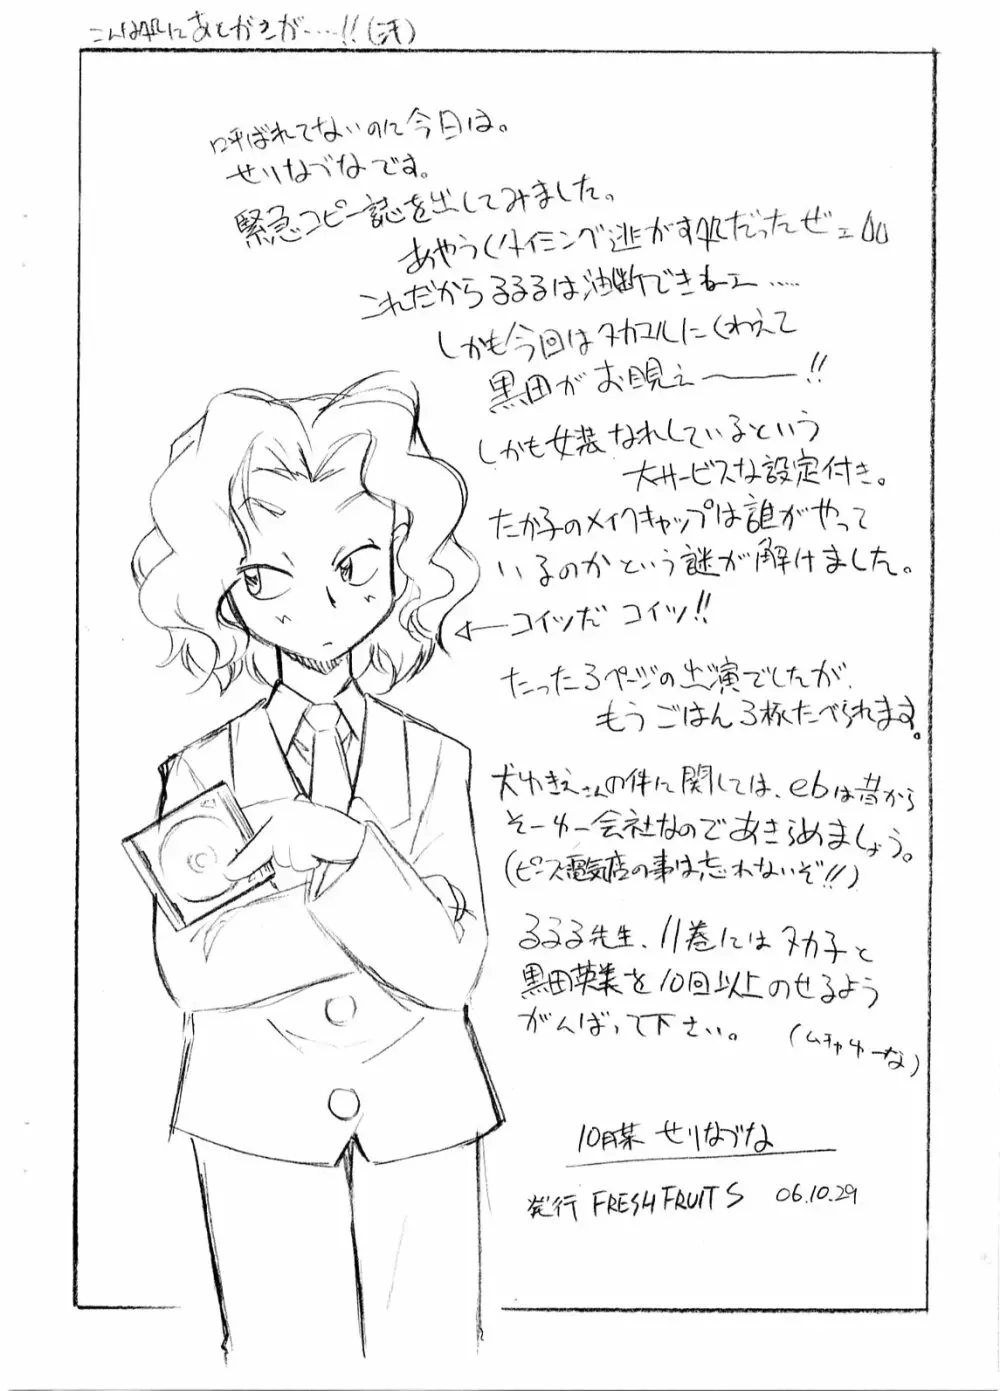 こんな処にあとがきが……!!(汗)
呼ばれてないのに今日は。
せりなづなです。
緊急コピー誌を出してみました。
あやうくタイミング逃がす処だったぜェ
これだからるるるは油断できねーェ……
しかも今回はヌカコルにくわえて
黒田がお目見え――!!
しかも女装なれしているという
大サービスな設定付き。
たか子のメイクキャップは誰がやって
いるのかという謎が解けました。
←コイツだ コイツ!!
たった3ページの出演でしたが、
もうごはん3杯たべられます。
犬ゆきえさんの件に関しては、ebは昔から
そーゆー会社なのであきらめましょう。
(ピース電気店の事は忘れないぞ!!)
るるる先生、11巻にはヌカ子と
黒田英美を10回以上のせるよう
がんばって下さい。
(ムチャゆーな)
10月某 せりなづな
発行 FRESH FRUITS 06.10.29